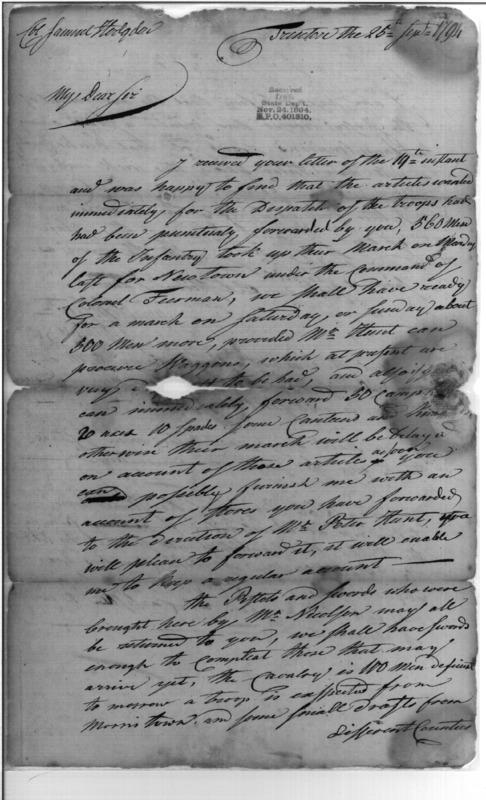 Col Samuel Hodgdon
Trenton the 26th Septr 1794
My Dear Sir
Received
from
State Dep't.
Nov. 24, 1804.
R.P.O. 401310.
I received your letter of the 19th instant
and was happy to find that the articles wanted
immediately, for the Despatch of the troops had
had been punctualy forwarded by you, 560 Men
of the Infantry took up their March on Monday
last for Newtown under the Command of
Colonel Freeman, we shall have ready
for a march on Saturday, or Sunday about
500 Men more, provided Mr Hunt can
procure Waggons, which at present are
very to be had, and
can immediately forward 50 Camp
20 axes 10 Spades some Canteens and
otherwise their march will be delayd
on account of those articles as soon as you
can possibly furnish me with an
account of Stores you have forwarded
to the direction of Mr Peter Hunt, you
will please to forward it, it will enable
me to keep a regular account —
the Pistols and swords who were
brought here by Mr Nicolson may all
be returned to you, we shall have swords
enough to Compleat those that may
arrive yet, the Cavalry is 100 Men deficient
to morrow a troop is expected from
Morristown and some small drafts from
different Counties